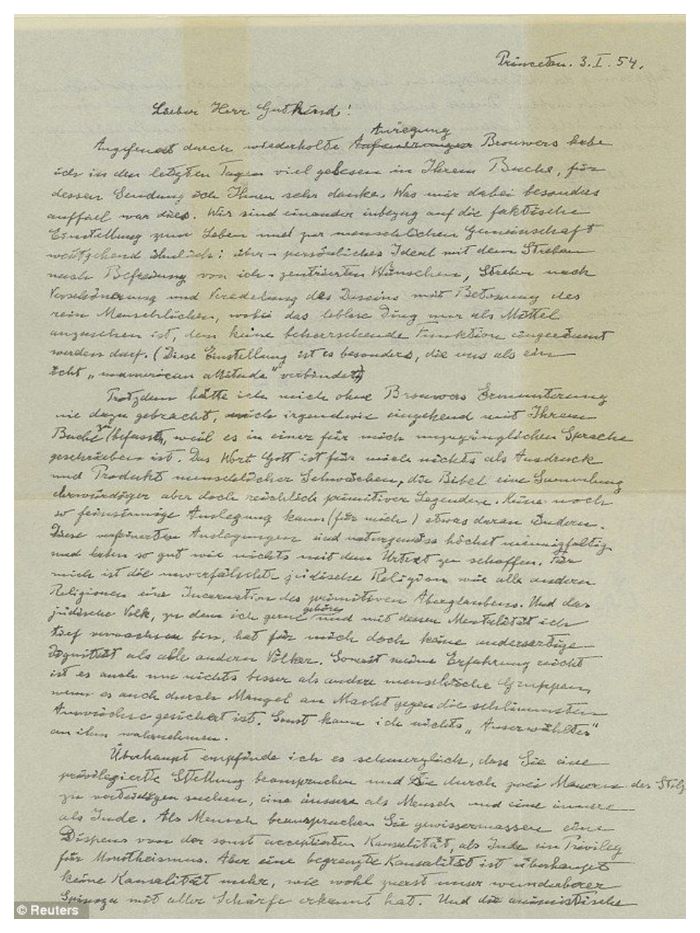 Princeton. 3. I. 54.
Lieber Herr Gutkind!
Angefeuert durch wiederholte Anregung Brouwers habe
ich in den letzten Tagen viel gelesen in Ihrem Buche, für
dessen Sendung ich Ihnen sehr danke. Was mir dabei besonders
auffiel war dies. Wir sind einander inbezug auf die faktische
Einstellung zum Leben und zur menschlichen Gemeinschaft
weitgehend ähnlich: über-persönliches Ideal mit dem Streben
nach Befreiung von ich-zentrierten Wünschen, Streben nach
Verschönerung und Veredelung des Daseins mit Betonung des
rein Menschlichen, wobei das leblose Ding nur als Mittel
anzusehen ist, dem keine beherrschende Funktion eingeräumt
werden darf. (Diese Einstellung ist es besonders, die uns als ein
echt „unamerican attitude" verbindet)
Trotzdem hätte ich mich ohne Brouwers Ermunterung
nie dazu gebracht, mich irgendwie eingehend mit Ihrem
Buche zu befassen, weil es in einer für mich unzugänglichen Sprache
geschrieben ist. Das Wort Gott ist für mich nichts als Ausdruck
und Produkt menschlicher Schwächen, die Bibel eine Sammlung
ehrwürdiger aber doch reichlich primitiver Legenden. Keine noch
so feinsinnige Auslegung kann (für mich) etwas daran ändern.
Diese verfeinerten Auslegungen sind naturgemäss höchst mannigfaltig
und haben so gut wie nichts mit dem Urtext zu schaffen. Für
mich ist die unverfälschte jüdische Religion wie alle anderen
Religionen eine Incarnation des primitiven Aberglaubens. Und das
jüdische Volk, zu dem ich gerne gehöre und mit dessen Mentalität ich
tief verwachsen bin, hat für mich doch keine andersartige
Dignität als alle anderen Völker. Soweit meine Erfahrung reicht
ist es auch um nichts besser als andere menschliche Gruppen,
wenn es auch durch Mangel an Macht gegen die schlimmsten
Auswüchse gesichert ist. Sonst kann ich nichts „Auserwähltes"
an ihm wahrnehmen.
Überhaupt empfinde ich es schmerzlich, dass Sie eine
privilegierte Stellung beanspruchen und sie durch zwei Mauern des Stolzes
zu verteidigen suchen, eine äussere als Mensch und eine innere
als Jude. Als Mensch beanspruchen Sie gewissermassen einen
Dispens von der sonst acceptierten Kausalität, als Jude ein Privileg
für Monotheismus. Aber eine begrenzte Kausalität ist überhaupt
keine Kausalität mehr, wie wohl zuerst unser wunderbarer
Spinoza mit aller Schärfe erkannt hat. Und die animistische
© Reuters